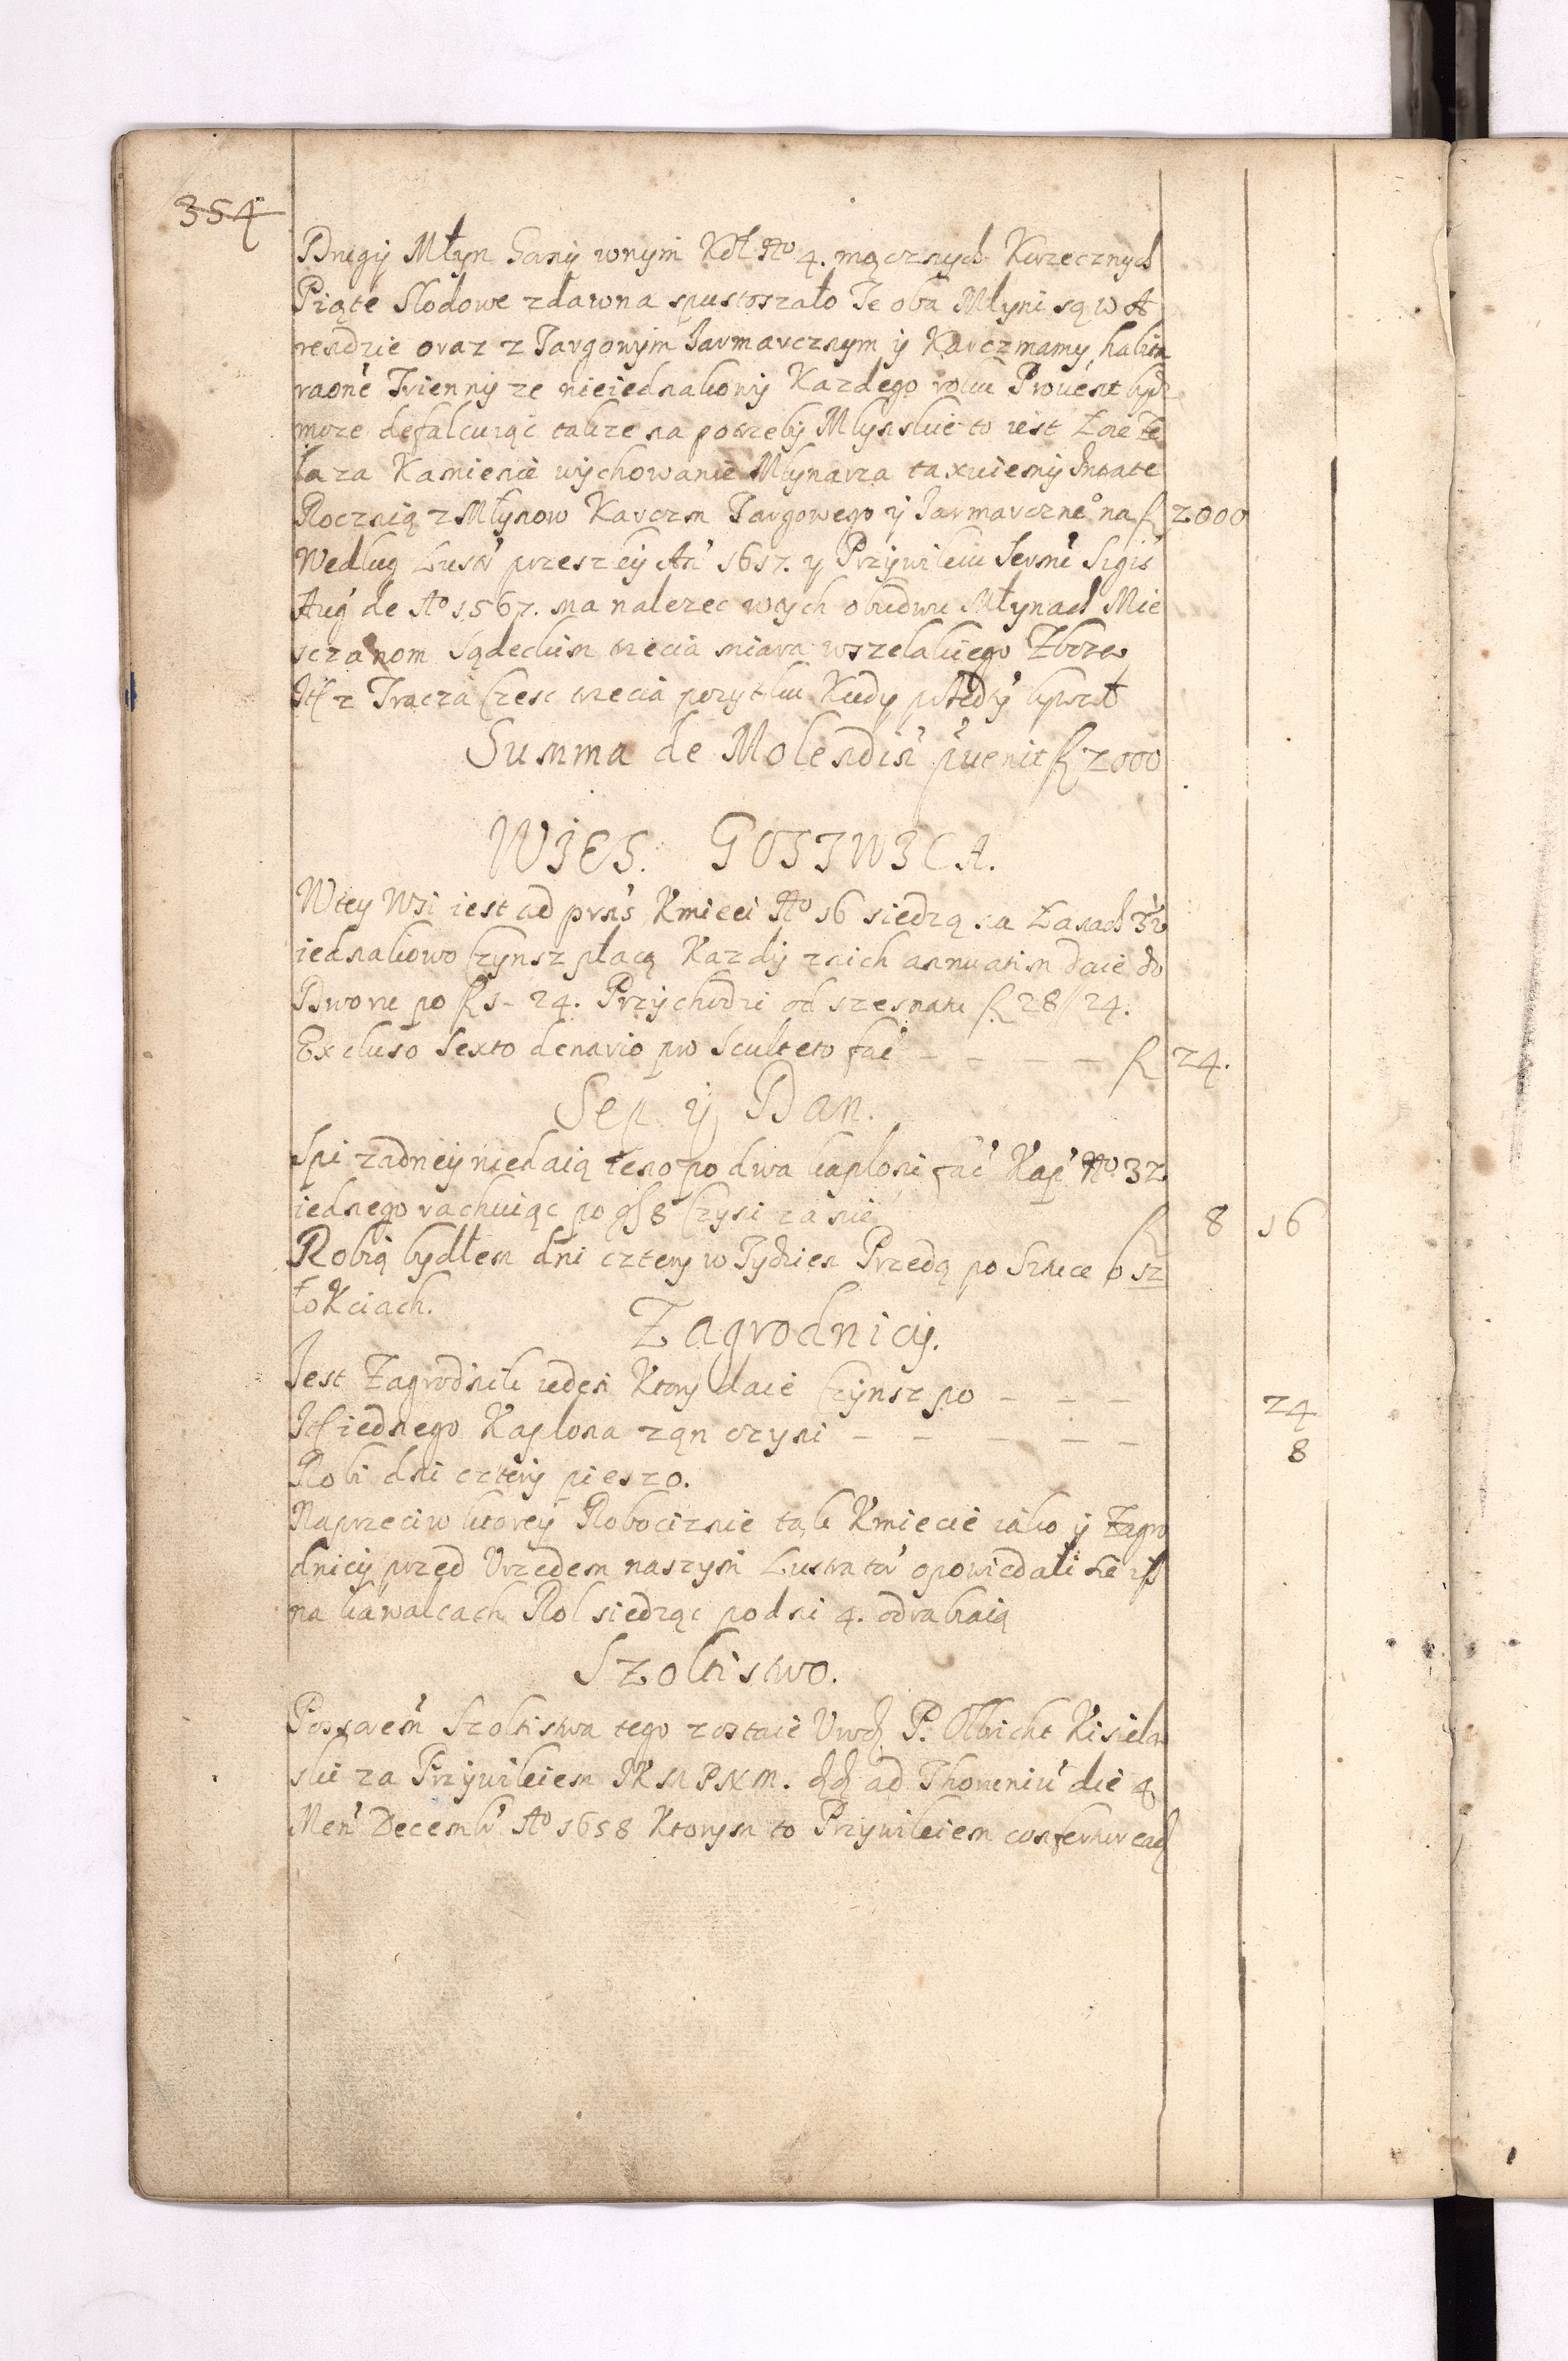 354
Drugÿ Młyn Garÿ wnym Kół No 4. mącznych Korzecznych
Piąte Slodowe zdawna spustoszało Te oba Młyni są w A
rendzie oraz z Targowym Jarmarcznym ÿ Karczmamy, habita
raone Trienny ze nieiednakowy Kazdego roku Prouent bydz
moze defalcuiąc takze na potrzeby Młynskie to iest Łoie Ze
laza Kamienie wychowanie Młynarza taxuiemy Intrate
Rocznią z Młynow Karczm Targowego ÿ Jarmarczne° na fl 2000
Wedlug Lustr' przeszłej An' 1617. y Przywileiu Serme' Sigis'
Aug' de Ao 1567. ma nalezec wtych obudwu Młynach Mie
sczanom Sądeckim trzecia miara wszelakiego Zboza
Itt z Tracza Czesc trzecia pozytku Kiedy
Summa de Molendin' puenit fl 2000
WIES. GOSTWICA.
Wtey Wsi iest ad prns Kmieci No 16 siedzą na Łanach
iednakowo Czynsz płacą Kazdÿ znich annuatim daie do
Dworu po fl 1 - 24. Przychodzi od szesnatu fl 28 // 24.
Excluso Sexto denario pro Sculteto fac' - - - - fl 24.
Sep ÿ Dan.
Spi zadneÿ niedaią teno po dwa kaploni fac' Kap' No 32
iednego rachuiąc po gs 8 Czyni za nie fl 8 16
Robią bydłem dni cztery w Tydzien Przedą po Sztuce o sz
łokciach.
Zagrodnicÿ.
Jest Zagrodnik ieden Ktory daie Czynsz po - - - 24
Itt iednego Kaplona zań czyni - - - - - 8
Robi dni czterÿ pieszo.
Naprzeciw ktoreÿ Robociznie tak Kmiecie iako ÿ Zagro
dnicÿ przed Vrzedem naszym Lustrator' opowiedali sie isz
na kawalcach Rol siedząc po dni 4. odrabiaią
Szoltistwo.
Possorem' Szoltistwa tego zostaie Vrod P. Olbricht Kisiela
ski za Przywileiem JKM PNM. dd ad Thoruniu' die 4
Men' Decemb' Ao 1658 Ktorym to Przywileiem